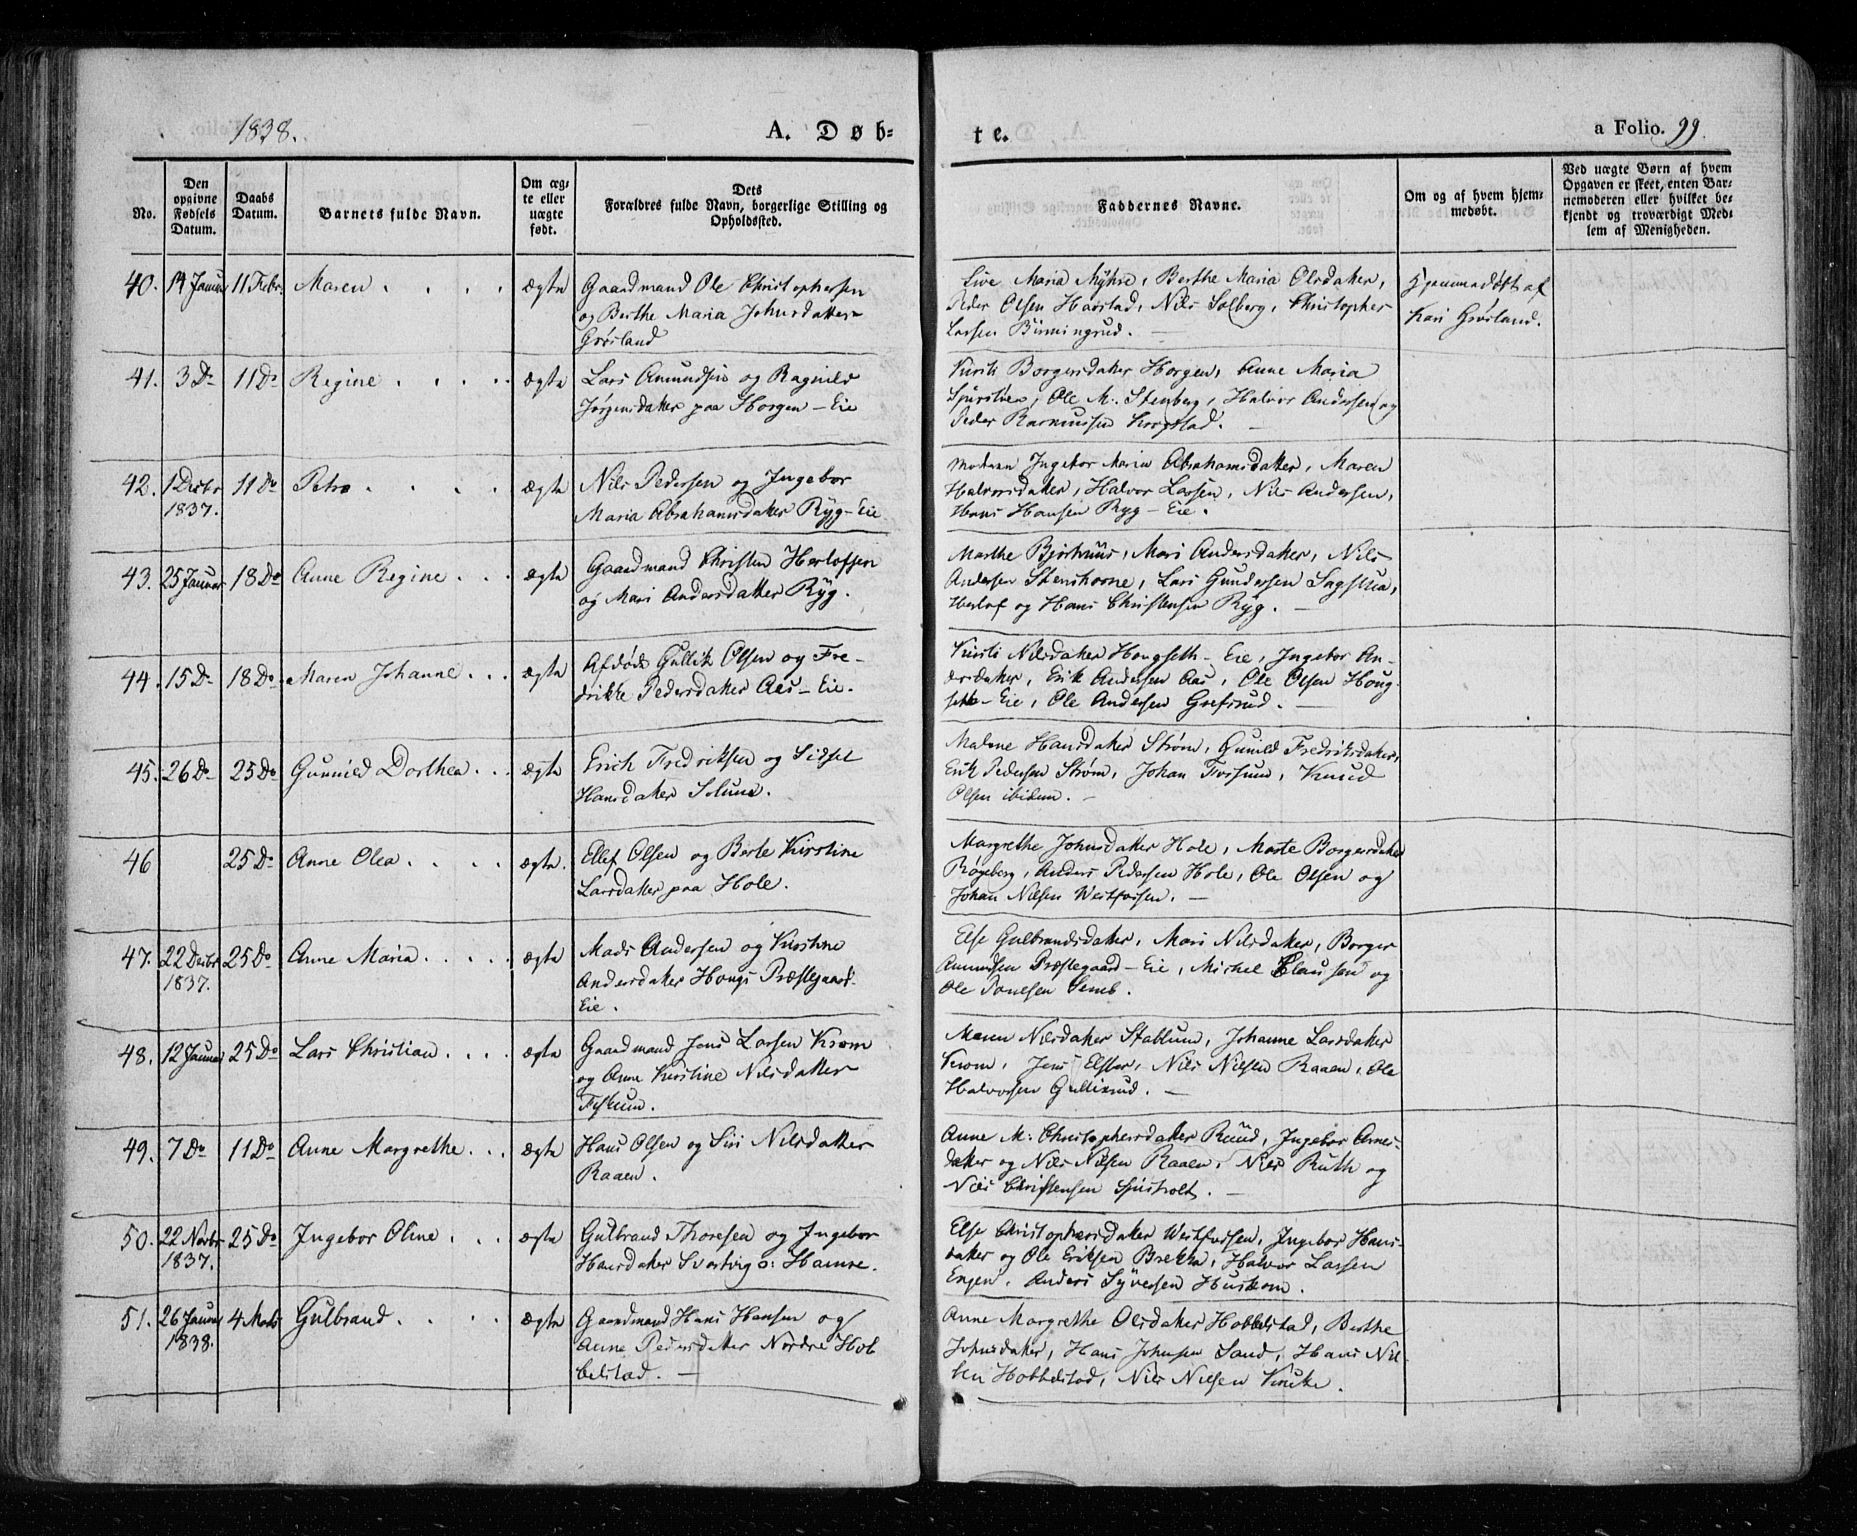 1838.
A. Døb=
te.
a Folio. 99.
No.
Den opgivne Fødsels Datum.
Daabs Datum.
Barnets fulde Navn.
Om æg-te eller uægte født.
Dets Forældres fulde Navn, borgerlige Stilling og Opholdssted.
Faddernes Navne.
Om og af hvem hjem-medøbt.
Ved uægte Børn af hvem Opgaven er skeet, enten Bar-nemoderen eller hvilket be-kjendt og troværdigt Med-lem af Menigheden.
40. 14 Januar 11 Febr. Maren ægte Gaardmand Ole Christophersen
og Berthe Maria Johnsdatter
Grøsland
Live Maria Myhre, Berthe Maria Olsdatter,
Peder Olsen Harstad, Nils Solberg, Christopher
Larsen Binningrud.
Hjemmedøbt af
Kari Grøsland.
41. 3 Do 11 Do Regine ægte Lars Amundsen og Ragnild
Jørgensdatter paa Horgen-Eie
Borgersdatter Horgen, Anne Maria
Ole M. Stenberg, Halvor Andersen og
Peder Rasmussen
42. 1 Decbr 1837. 11 Do Petra ægte Nils Pedersen og Ingebor
Maria Abrahamsdatter Ryg-Eie
Moderen Ingebor Maria Abrahamsdatter, Maren
Halvorsdatter, Halvor Larsen, Nils Andersen,
Hans Hansen Ryg-Eie.
43. 25 Januar 18 Do Anne Regine ægte Gaardmand Christen Herlofsen
og Mari Andersdatter Ryg.
Marthe Bjørhuus, Mari Andersdatter, Nils
Andersen Stenshorne, Lars Gundersen Sagstua,
Herlof og Hans Christensen Ryg.
44. 15 Do 18 Do Maren Johanne ægte Afdøde Gullik Olsen og Fre-
drikke Pedersdatter Aas-Eie.
Kirsti Nilsdatter Hougseth-Eie, Ingebor An-
dersdatter, Erik Andersen Aas, Ole Olsen Houg-
seth-Eie, Ole Andersen Grefsrud.
45. 26 Do 25 Do Gunnild Dorthea ægte Erich Fredriksen og Sidsel
Hansdatter Solum.
Malene Hansdatter Strøm, Gunild Fredriksdatter,
Erik Pedersen Strøm, Johan Fossum, Knud
Olsen ibidem.
46 25 Do Anne Olea ægte. Ellef Olsen og Berte Kirstine
Larsdatter paa Hole.
Margrethe Johnsdatter Hole, Marte Borgersdatter
Røgeberg, Anders Pedersen Hole, Ole Olsen og
Johan Nilsen Westfossen.
47. 22 Decbr 1837. 25 Do Anne Maria ægte Mads Andersen og Kirstine
Andersdatter Hougs Præstegaard-
Eie.
Else Gulbrandsdatter, Mari Nilsdatter, Borger
Amundsen Præstegaard-Eie, Michel Clausen og
Ole Poulsen Semb.
48. 12 Januar 25 Do Lars Christian ægte Gaardmand Jens Larsen Krom
og Anne Kirstine Nilsdatter
Fiskum.
Maren Nilsdatter Stablum, Johanne Larsdatter
Krom, Jens Elster, Nils Nilsen Raaen, Ole
Halvorsen Gulliksrud.
49. 7 Do 11 Do Anne Margrethe ægte Hans Olsen og Siri Nilsdatter
Raaen.
Anne M. Christophersdatter Ruud, Ingebor Arnes-
datter og Nils Nilsen Raaen, Nils Ruth og
Nils Christensen Spirholt.
50. 22 Novbr 1837. 25 Do Ingebor Oline ægte Gulbrand Thoresen og Ingebor
Hansdatter Svartvig o: Hamre.
Else Christophersdatter Westfossen, Ingebor Hans-
datter og Ole Eriksen Brekka, Halvor Larsen
Engen, Anders Syversen Huskom.
51. 26 Januar 1838. 4 Marts Gulbrand ægte Gaardmand Hans Hansen og
Anne Pedersdatter Nordre Hob-
belstad.
Anne Margrethe Olsdatter Hobbelstad, Berthe
Johnsdatter, Hans Johnsen Sand, Hans Nil-
sen Hobbelstad, Nils Nilsen Krukke.